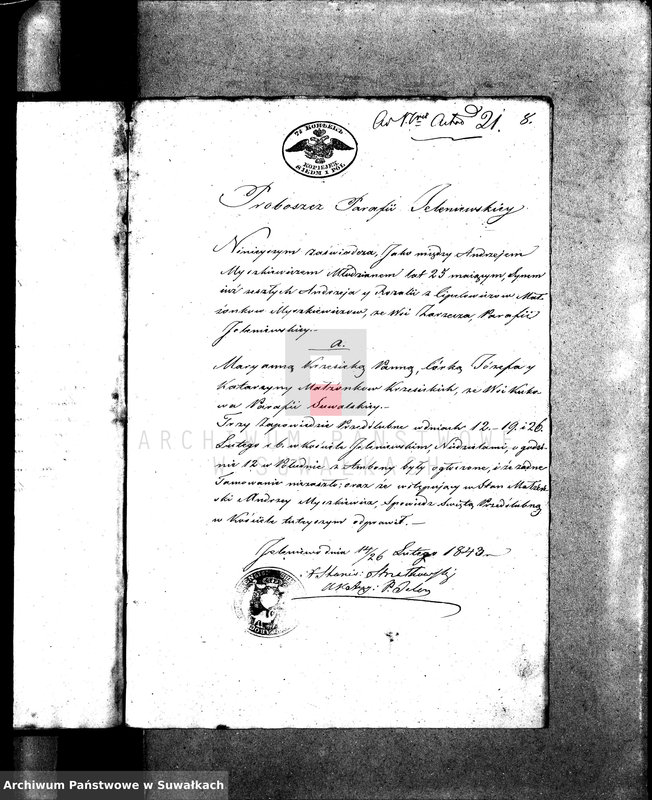 Do Nru Aktu 21. 8.
7½ КОПѢЕКЪ
KOPIEJEK
SIEDM I PÓŁ
Proboszcz Parafii Jeleniewskiey
Ninieyszym zaświadcza, Jako między Andrzejem
Myszkiewiczem Młodzianem lat 25 maiącym, Synem
iuż zeszłych Andrzeja y Rozalii z Cipelewiczow Mał-
żonkow Myszkiewiczow, ze Wsi Zarzecza, Parafii
Jeleniewskiey.
a.
Maryanną Krzesicką Panną, córką Józefa y
Katarzyny Małżonkow Krzesickich, ze Wsi Kuko-
wa Parafii Suwalskiey.
Trzy zapowiedzie Przedślubne w dniach 12 - 19 i 26
Lutego r. b. w kościele Jeleniewskim, Niedzielami, o godzi-
nie 12 w Południe z Ambony były ogłoszone, i że żadne
Tamowanie niezaszło; oraz że wstępujący w Stan Małżeń-
ski Andrzey Myszkiewicz, Spowiedź Świętą Przedślubną
w Kościele tuteyszym odprawił.
Jeleniewo dnia 14/26 Lutego 1843
X Stanis:
P. Jelen
ARCHIWUM PAŃSTWOWE
W SUWAŁKACH
Archiwum Państwowe w Suwałkach